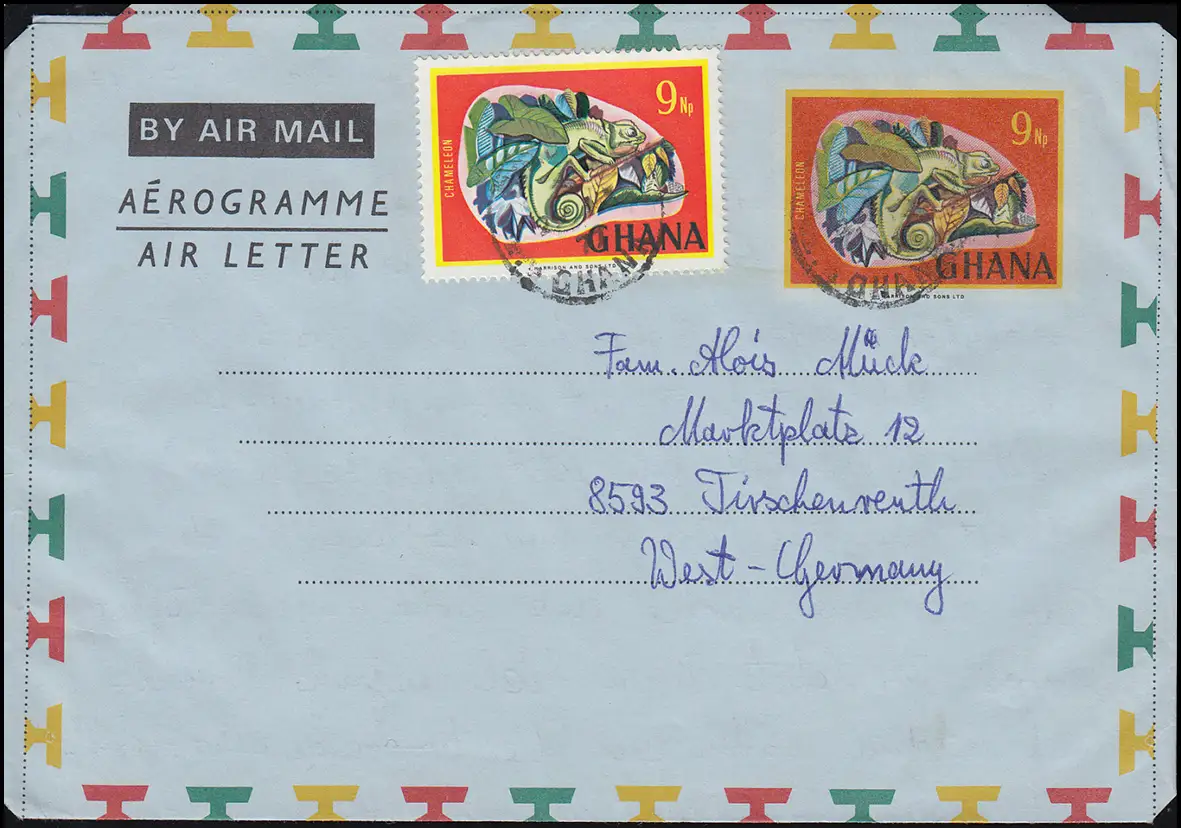 BY AIR MAIL
AÉROGRAMME
AIR LETTER
CHAMELEON
9 Np
GHANA
HARRISON AND SONS LTD
CHAMELEON
9 Np
GHANA
HARRISON AND SONS LTD
GHANA
GHANA
Fam. Alois Mück
Marktplatz 12
8593 Tirschenreuth
West-Germany